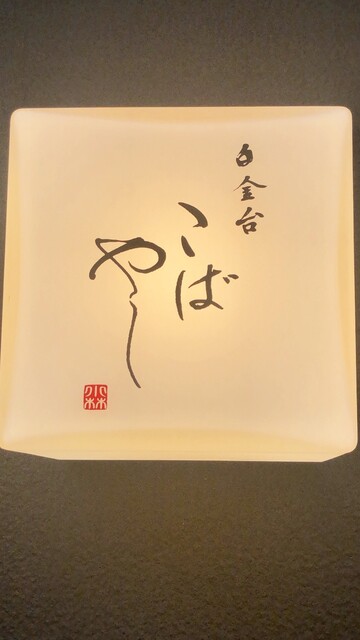 白金台
こば
やし
小林